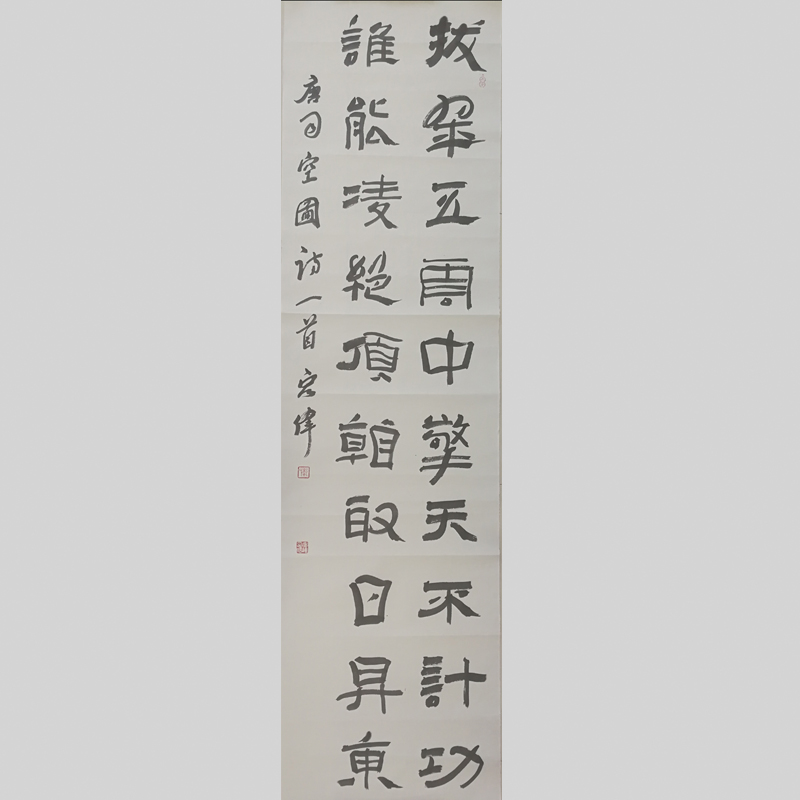 拔翠五雲中擎天不計功
誰能凌絕頂看取日昇東
唐司空圖詩一首 偉